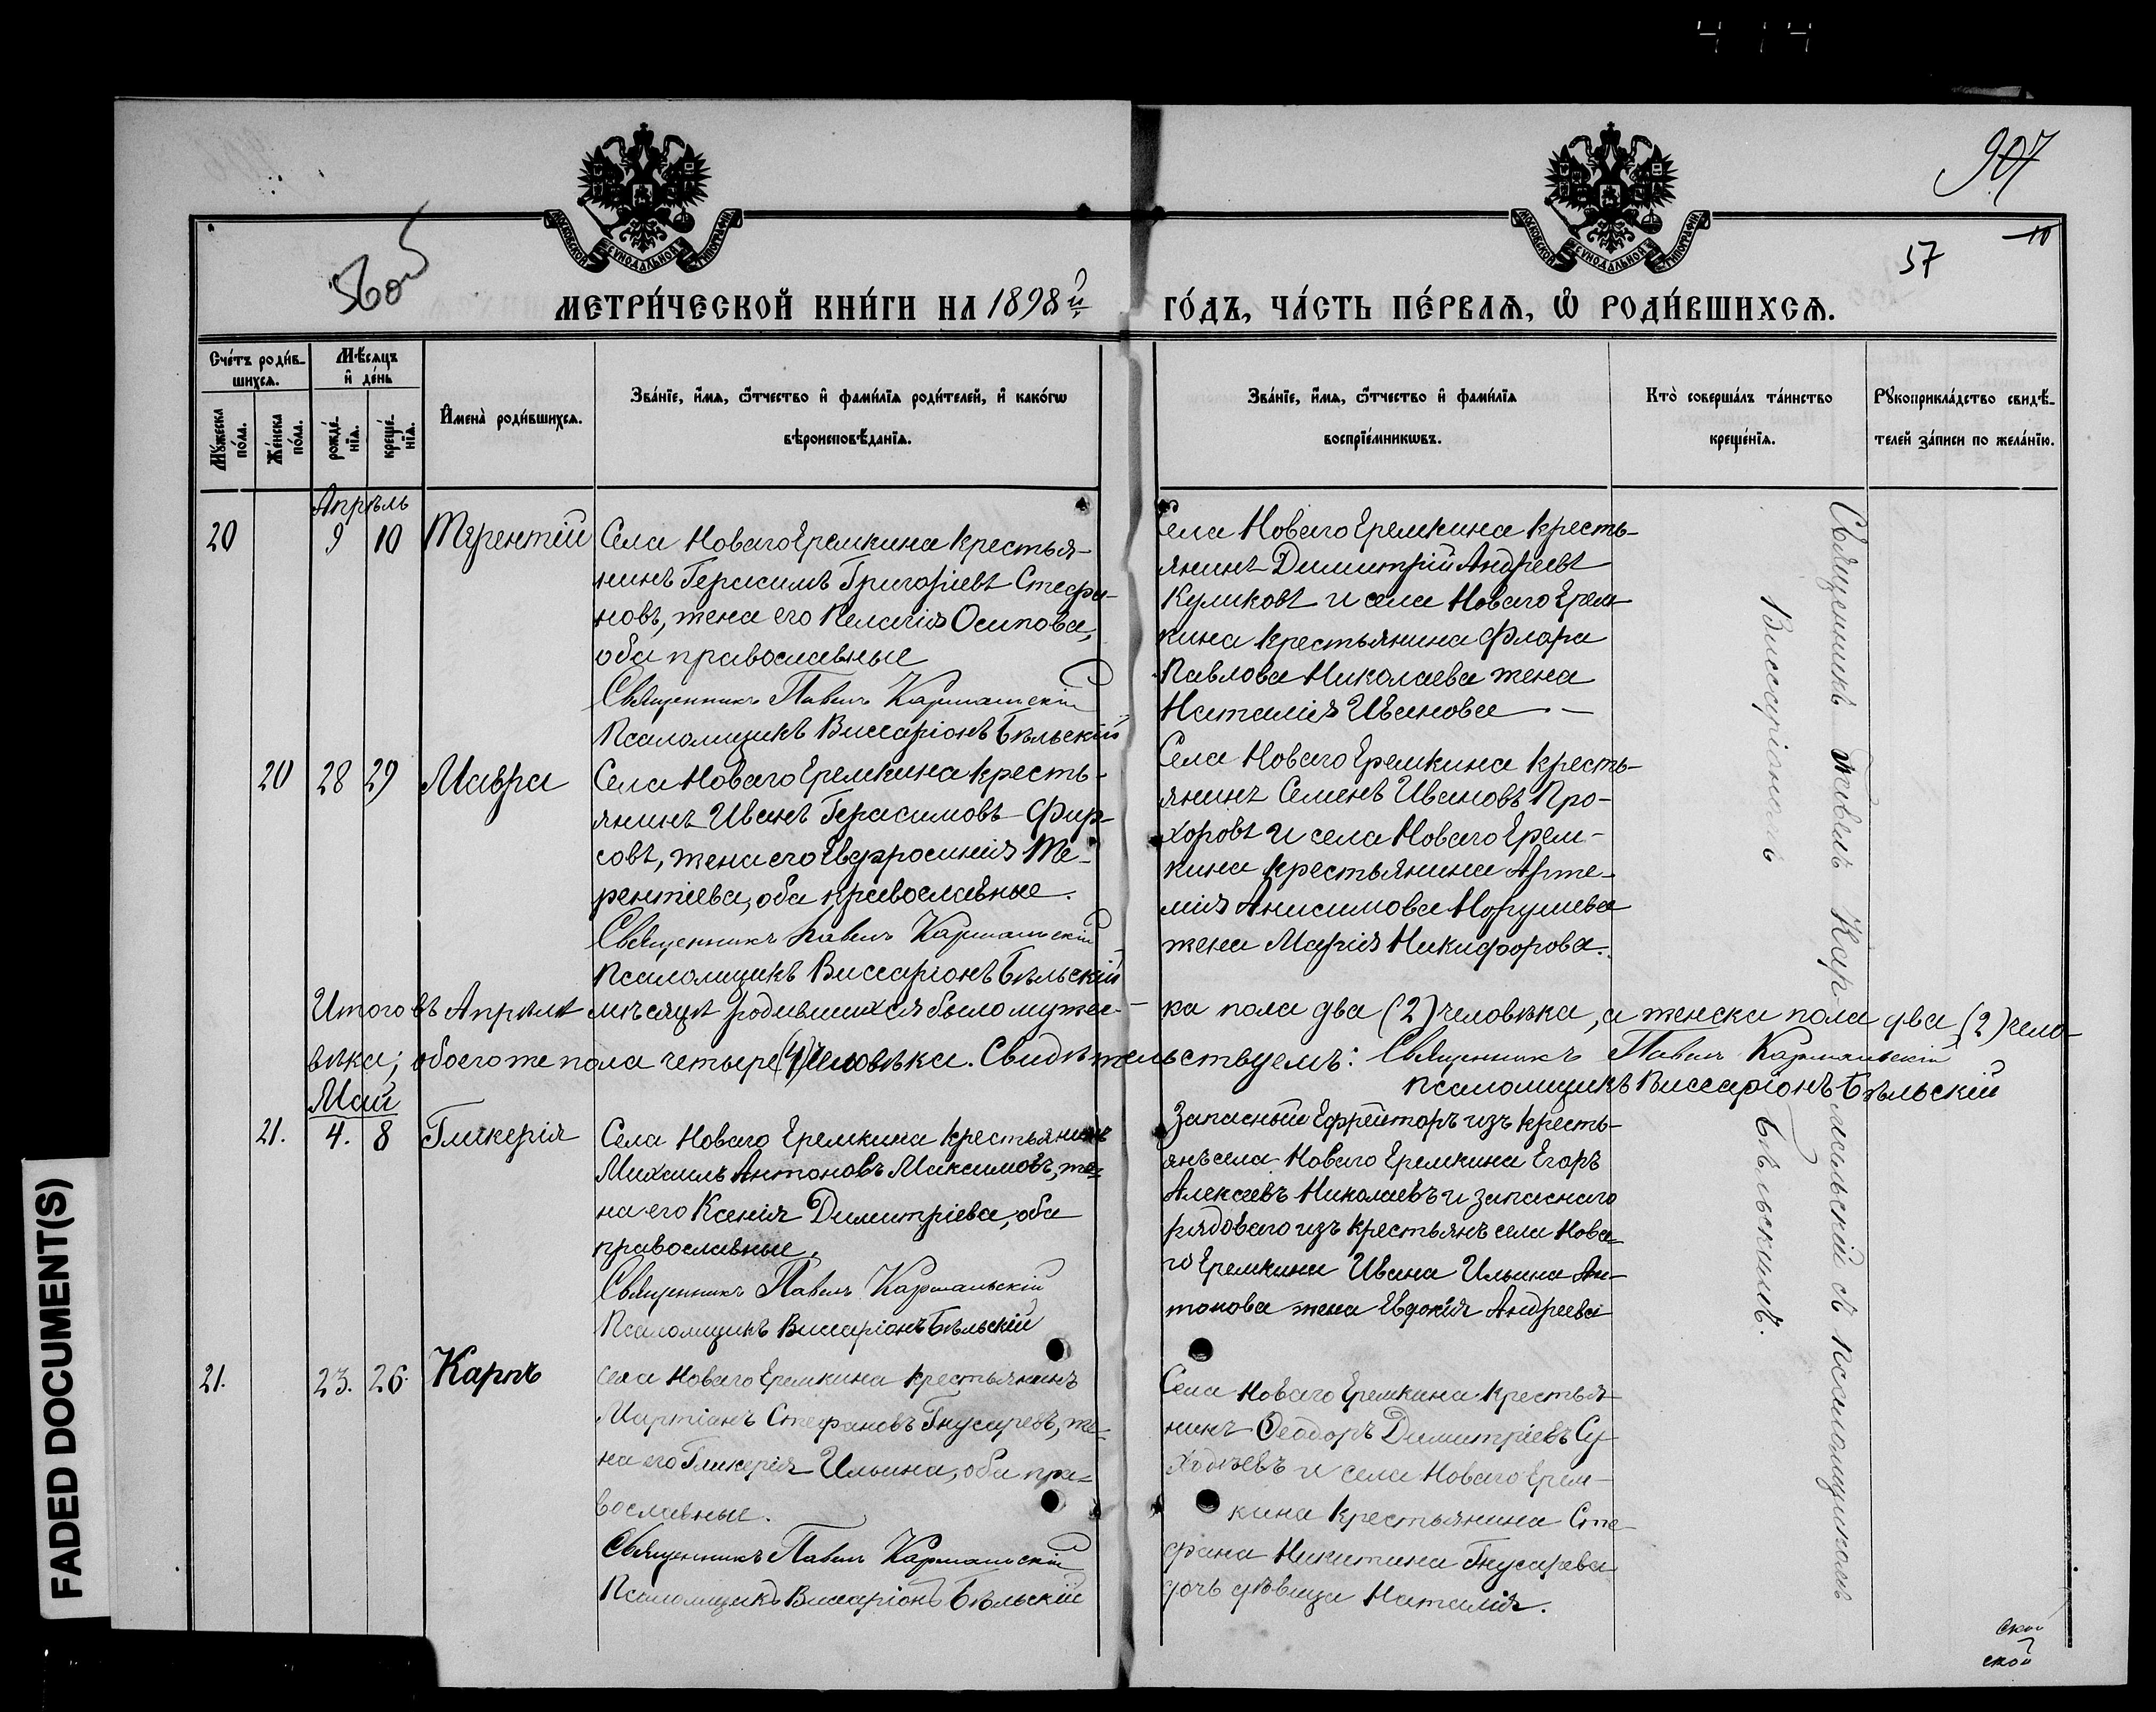 907
57
10
МЕТРИ́ЧЕСКОЙ КНИ́ГИ НА 1898й ГО́ДЪ, ЧА́СТЬ ПЕ́РВАѦ, Ѽ РОДИ́ВШИХСѦ.
Сче́тъ роди́в-
шихсѧ.
Мѣ́сяцъ
и҆ де́нь
Мꙋ́жеска
по́ла.
Же́нска
по́ла.
рожде́-
нїѧ.
креще́-
нїѧ.
И҆мена̀ роди́вшихсѧ.
Зва́нїе, и҆́мѧ, ѻ҆́тчество и҆ фами́лїѧ роди́телей, и҆ како́гѡ
вѣроисповѣ́данїѧ.
Зва́нїе, и҆́мѧ, ѻ҆́тчество и҆ фами́лїѧ
воспрїе́мникѡвъ.
Кто̀ соверша́лъ та́инство
креще́нїѧ.
Рꙋкоприкла́дство свидѣ́-
телей за́писи по жела́нїю.
Апрѣль
20 9 10 Терентій
Села Новаго Еремкина крестья-
нинъ Герасимъ Григоріевъ Стефа-
новъ, жена его Пелагія Осипова,
оба православные
Священникъ Павелъ Кармальскій
Псаломщикъ Виссаріонъ Бѣльскій
Села Новаго Еремкина кресть-
янинъ Димитрій Андреевъ
Куликовъ и села Новаго Ерем-
кина крестьянина Флора
Павлова Николаева жена
Наталія Иванова.
20 28 29 Мавра
Села Новаго Еремкина кресть-
янинъ Иванъ Герасимовъ Фир-
совъ, жена его Евфросинія Те-
рентіева, оба православные.
Священникъ Павелъ Кармальскій
Псаломщикъ Виссаріонъ Бѣльскій
Села Новаго Еремкина кресть-
янинъ Семенъ Ивановъ Про-
хоровъ и села Новаго Ерем-
кина крестьянина Арте-
мія Анисимова Норушева
жена Марія Никифорова.
Итого въ Апрѣлѣ мѣсяцѣ родившихся было мужес- ка пола два (2) человѣка, а женска пола два (2) чело-
вѣка; обоего же пола четыре (4) человѣка. Свидѣтельствуемъ: Священникъ Павелъ Кармальскій
Псаломщикъ Виссаріонъ Бѣльскій
Май
21. 4. 8 Гликерія
Села Новаго Еремкина крестьянинъ
Михаилъ Антоновъ Максимовъ, же-
на его Ксенія Димитріева, оба
православные.
Священникъ Павелъ Кармальскій
Псаломщикъ Виссаріонъ Бѣльскій
Запасный Ефрейторъ изъ кресть-
янъ села Новаго Еремкина Егоръ
Алексѣевъ Николаевъ и запаснаго
рядоваго изъ крестьянъ села Нова-
го Еремкина Ивана Ильина Ан-
тонова жена Евдокія Андреева
21. 23. 26. Карпъ
Села Новаго Еремкина крестьянинъ
Мартіанъ Стефановъ Гнусаревъ, же-
на его Гликерія Ильина, оба пра-
вославные.
Священникъ Павелъ Кармальскій
Псаломщикъ Виссаріонъ Бѣльскій
Села Новаго Еремкина крестья-
нинъ Ѳеодоръ Димитріевъ Су-
ходѣевъ и села Новаго Ерем-
кина крестьянина Сте-
фана Никитина Гнусарева
дочь дѣвица Наталія.
Священникъ Павелъ Кармальскій съ псаломщикомъ
Виссаріономъ Бѣльскимъ.
ской
FADED DOCUMENT(S)